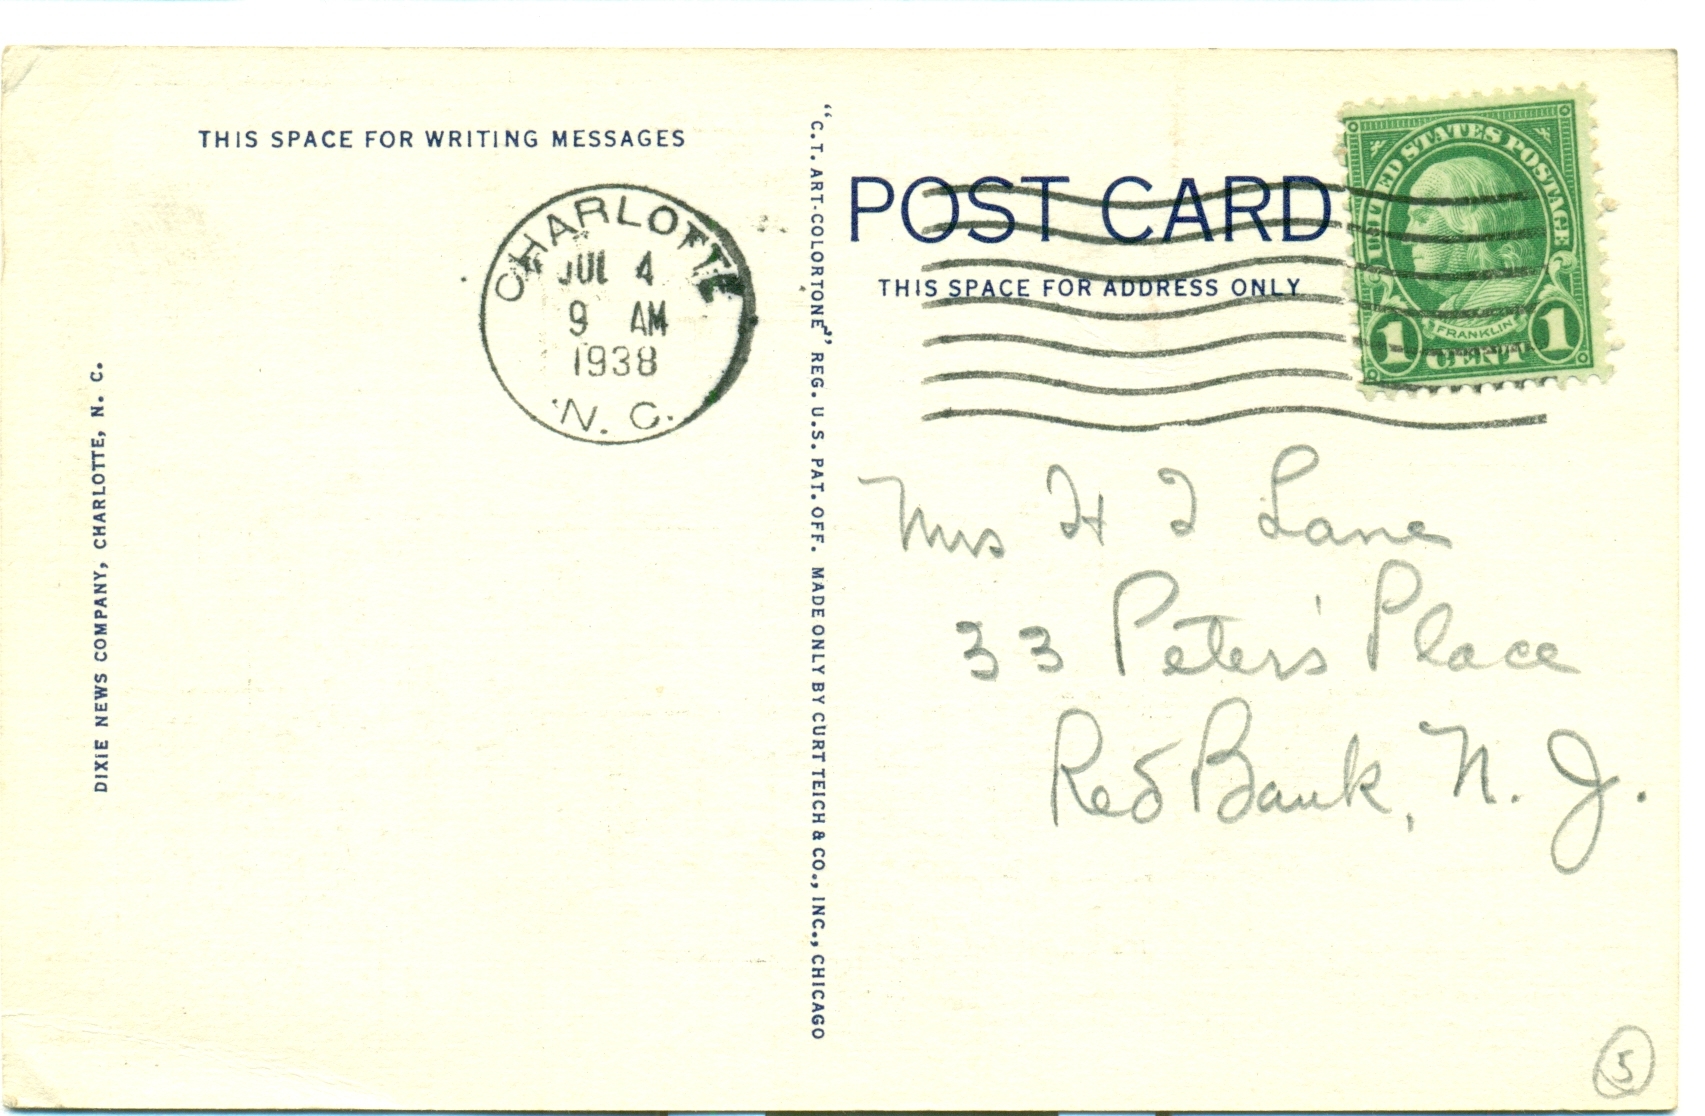 THIS SPACE FOR WRITING MESSAGES
CHARLOTTE
JUL 4
9 AM
1938
N. C.
DIXIE NEWS COMPANY, CHARLOTTE, N. C.
"C.T. ART-COLORTONE" REG. U.S. PAT. OFF. MADE ONLY BY CURT TEICH & CO., INC., CHICAGO
POST CARD
THIS SPACE FOR ADDRESS ONLY
UNITED STATES POSTAGE
FRANKLIN
1 CENT 1
Mrs H I Lane
33 Peters' Place
Red Bank, N. J.
5